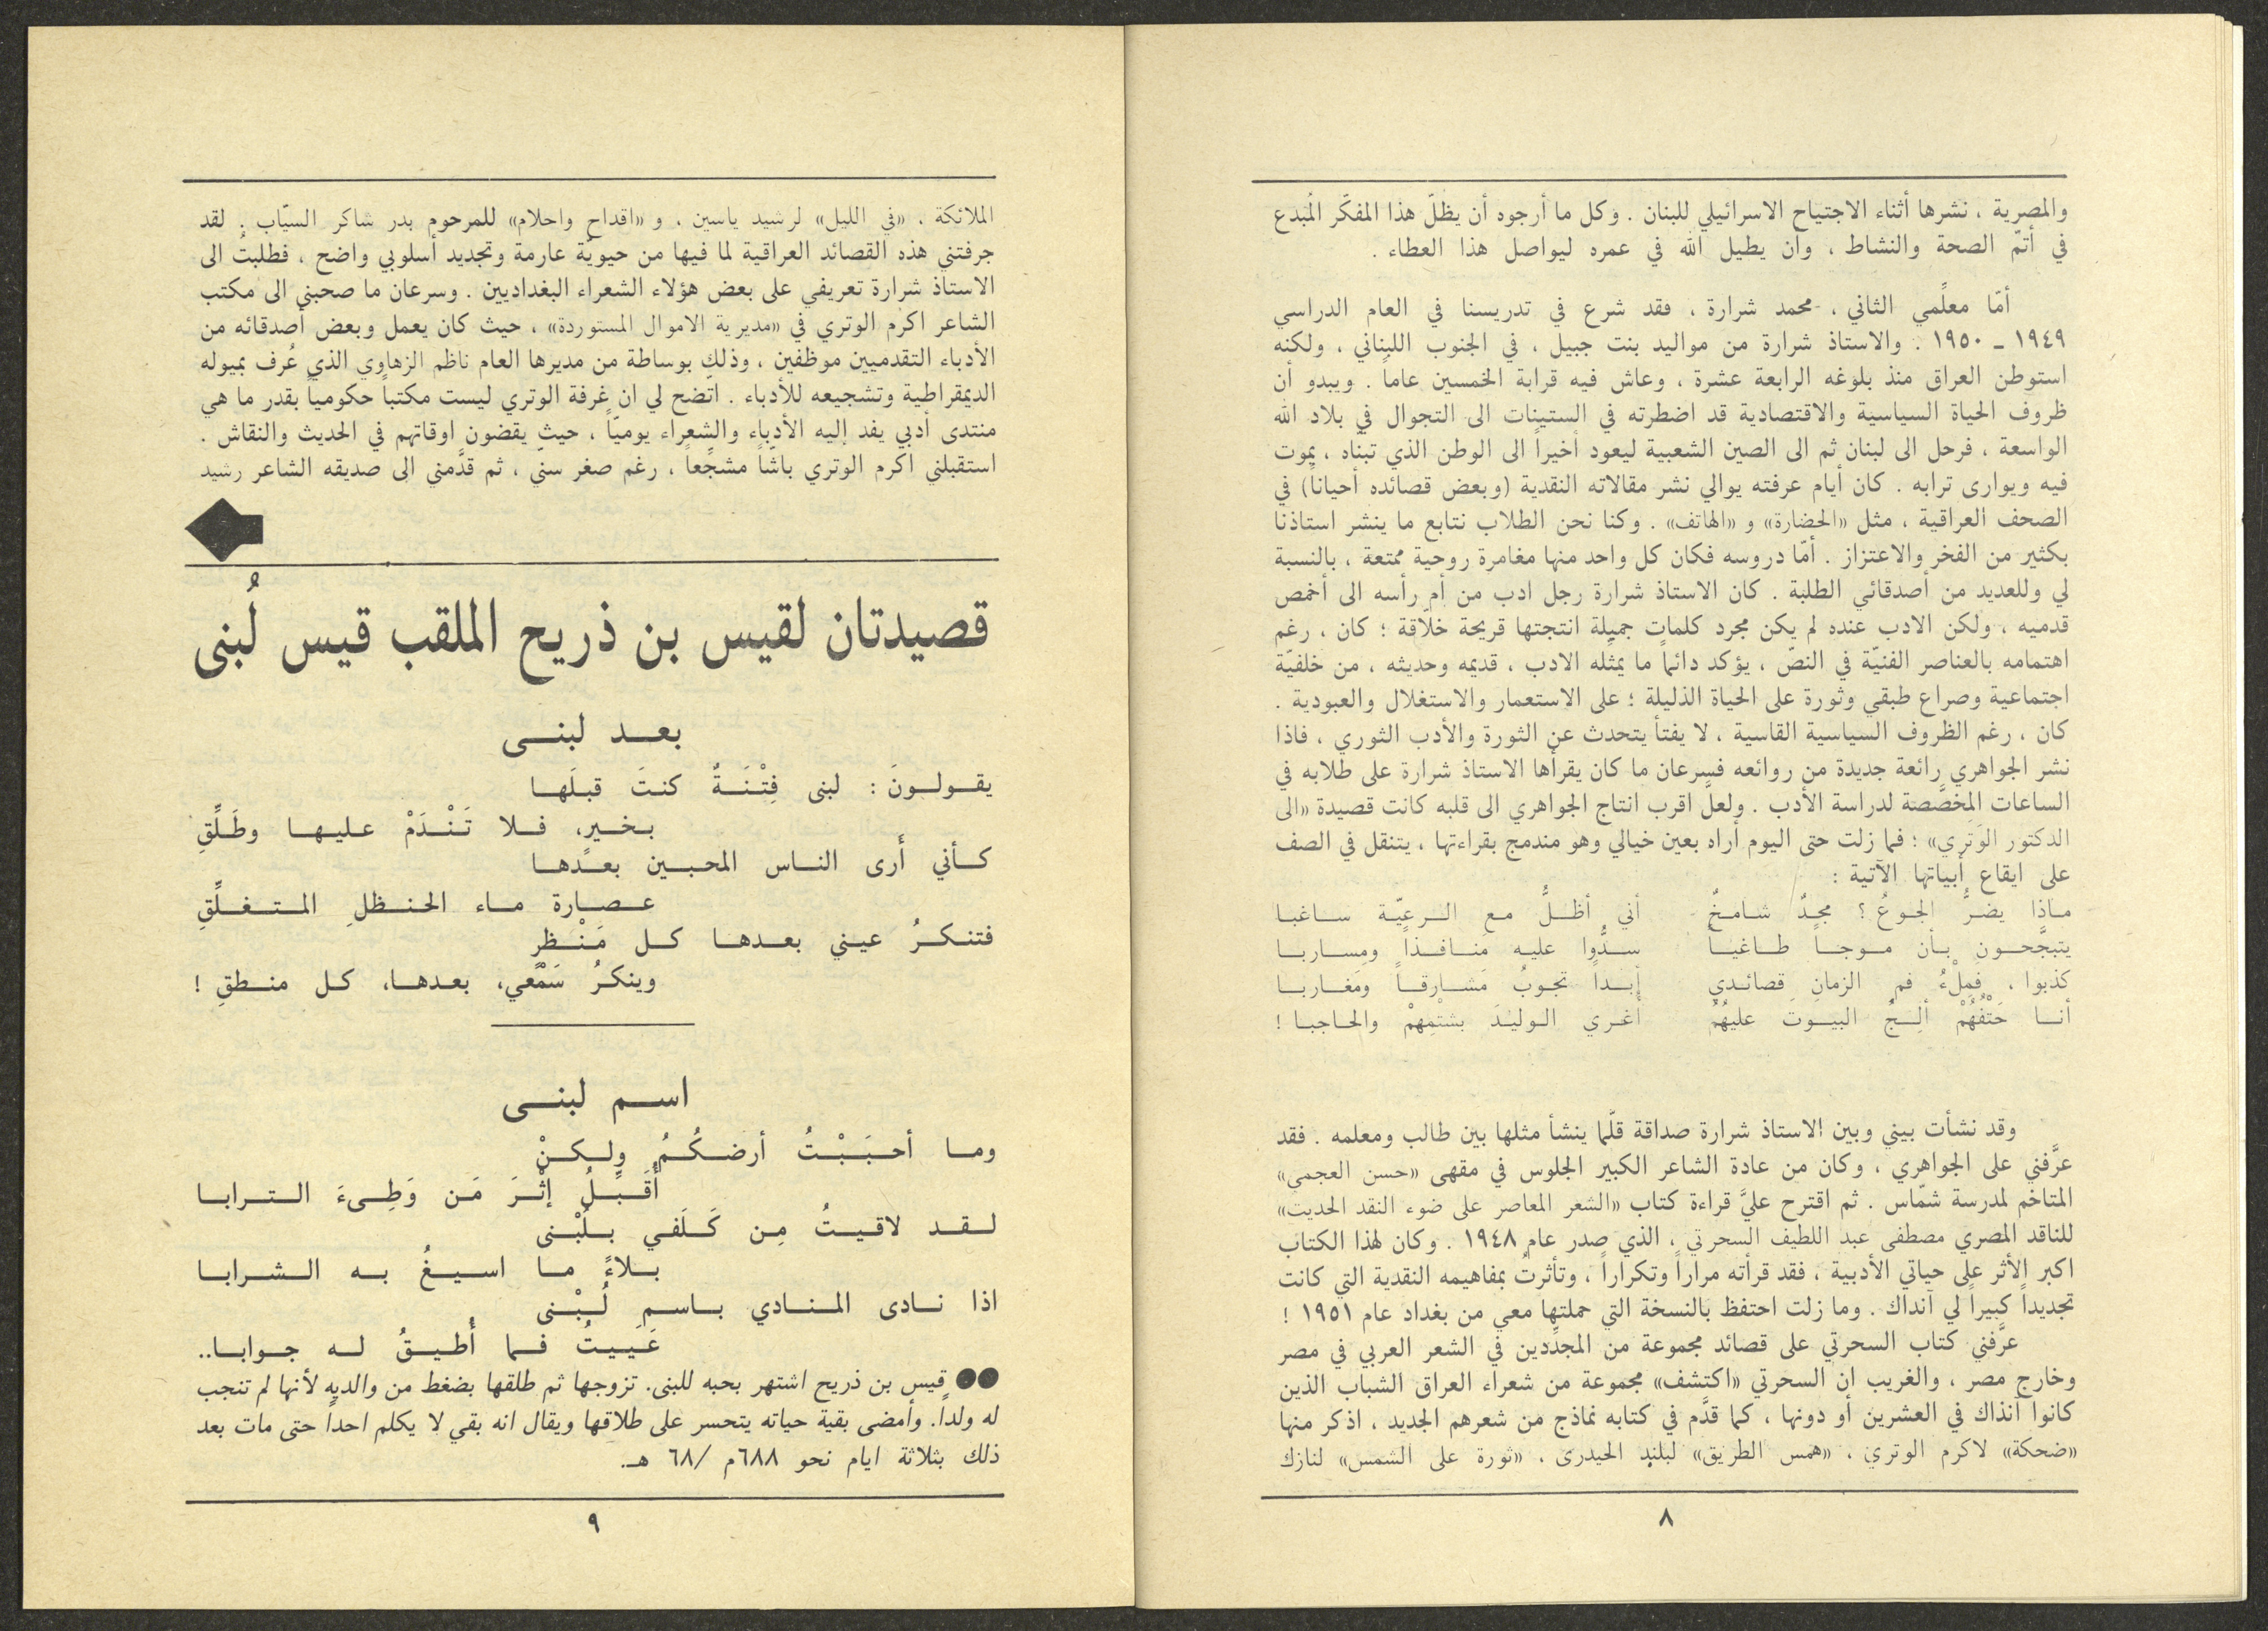 والمصرية ، نشرها أثناء الاجتياح الاسرائيلي للبنان . وكل ما أرجوه أن يظلّ هذا المفكّر المُبدع
في أتمّ الصحة والنشاط ، وان يطيل الله في عمره ليواصل هذا العطاء .
أمّا معلِّمي الثاني ، محمد شرارة ، فقد شرع في تدريسنا في العام الدراسي
١٩٤٩ ـ ١٩٥٠ . والاستاذ شرارة من مواليد بنت جبيل ، في الجنوب اللبناني ، ولكنه
استوطن العراق منذ بلوغه الرابعة عشرة ، وعاش فيه قرابة الخمسين عاماً . ويبدو أن
ظروف الحياة السياسية والاقتصادية قد اضطرته في الستينات الى التجوال في بلاد الله
الواسعة ، فرحل الى لبنان ثم الى الصين الشعبية ليعود أخيراً الى الوطن الذي تبنّاه ، يموت
فيه ويوارى ترابه . كان أيام عرفته يوالي نشر مقالاته النقدية (وبعض قصائده أحياناً) في
الصحف العراقية ، مثل «الحضارة» و «الهاتف» . وكنا نحن الطلاب نتابع ما ينشر استاذنا
بكثير من الفخر والاعتزاز . أمّا دروسه فكان كل واحد منها مغامرة روحية ممتعة ، بالنسبة
لي وللعديد من أصدقائي الطلبة . كان الاستاذ شرارة رجل ادب من أم رأسه الى أخمص
قدميه ، ولكن الادب عنده لم يكن مجرد كلمات جميلة انتجتها قريحة خلّاقة ؛ كان ، رغم
اهتمامه بالعناصر الفنيّة في النصّ ، يؤكد دائماً ما يمثله الادب ، قديمه وحديثه ، من خلفيّة
اجتماعية وصراع طبقي وثورة على الحياة الذليلة ؛ على الاستعمار والاستغلال والعبودية .
كان ، رغم الظروف السياسية القاسية ، لا يفتأ يتحدث عن الثورة والأدب الثوري ، فاذا
نشر الجواهري رائعة جديدة من روائعه فسرعان ما كان يقرأها الاستاذ شرارة على طلابه في
الساعات المخصَّصة لدراسة الأدب . ولعلَّ اقرب انتاج الجواهري الى قلبه كانت قصيدة «الى
الدكتور الوَتري» ؛ فما زلت حتى اليوم أراه بعين خيالي وهو مندمج بقراءتها ، يتنقل في الصف
على ايقاع أبياتها الآتية :
ماذا يضرُّ الجوعُ ؟ مجدٌ شامخٌ أني أظلُّ مع الرعيّة ساغبا
يتبجَّحون بأن موجاً طاغياً سدُّوا عليه مَنافذاً ومساربا
كذبوا ، فمِلْءُ فم الزمانِ قصائدي أبداً تجوبُ مَشارقاً ومَغاربا
أنا حَتْفُهُمْ ألِجُ البيوتَ عليهُمُ أغري الوليدَ بشتْمِهمْ والحاجبا !
وقد نشأت بيني وبين الاستاذ شرارة صداقة قلّما ينشأ مثلها بين طالب ومعلمه . فقد
عرَّفني على الجواهري ، وكان من عادة الشاعر الكبير الجلوس في مقهى «حسن العجمي»
المتاخم لمدرسة شمّاس . ثم اقترح عليَّ قراءة كتاب «الشعر المعاصر على ضوء النقد الحديث»
للناقد المصري مصطفى عبد اللطيف السحرتي ، الذي صدر عام ١٩٤٨ . وكان لهذا الكتاب
اكبر الأثر على حياتي الأدبية ، فقد قرأته مراراً وتكراراً ، وتأثرتُ بمفاهيمه النقدية التي كانت
تجديداً كبيراً لي آنذاك . وما زلت احتفظ بالنسخة التي حملتها معي من بغداد عام ١٩٥١ !
عرَّفني كتاب السحرتي على قصائد مجموعة من المجدِّدين في الشعر العربي في مصر
وخارج مصر ، والغريب ان السحرتي «اكتشف» مجموعة من شعراء العراق الشباب الذين
كانوا آنذاك في العشرين أو دونها ، كما قدَّم في كتابه نماذج من شعرهم الجديد ، اذكر منها
«ضحكة» لاكرم الوتري ، «همس الطريق» لبلند الحيدري ، «ثورة على الشمس» لنازك
٨
الملائكة ، «في الليل» لرشيد ياسين ، و «اقداح واحلام» للمرحوم بدر شاكر السيّاب . لقد
جرفتني هذه القصائد العراقية لما فيها من حيويّة عارمة وتجديد أسلوبي واضح ، فطلبتُ الى
الاستاذ شرارة تعريفي على بعض هؤلاء الشعراء البغداديين . وسرعان ما صحبني الى مكتب
الشاعر اكرم الوتري في «مديرية الاموال المستوردة» ، حيث كان يعمل وبعض أصدقائه من
الأدباء التقدميين موظفين ، وذلك بوساطة من مديرها العام ناظم الزهاوي الذي عُرف بميوله
الديمقراطية وتشجيعه للأدباء . اتّضح لي ان غرفة الوتري ليست مكتباً حكومياً بقدر ما هي
منتدى أدبي يفد إليه الأدباء والشعراء يوميّاً ، حيث يقضون اوقاتهم في الحديث والنقاش .
استقبلني اكرم الوتري باشّاً مشجِّعاً ، رغم صغر سنّي ، ثم قدَّمني الى صديقه الشاعر رشيد
قصيدتان لقيس بن ذريح الملقب قيس لُبنى
بعد لبنى
يقولونَ : لبنى فِتْنَةٌ كنتَ قبلَها
بخيرٍ، فلا تَنْدَمْ عليها وطَلِّقِ
كأني أَرى الناس المحبين بعدها
عصارة ماء الحنظلِ المتغلِّقِ
فتنكرُ عيني بعدها كل مَنْظرٍ
وينكرُ سَمْعي، بعدها، كل منطقِ !
اسم لبنى
وما أحبَبْتُ أرضكُمُ ولكنْ
أُقَبِّلُ إثْرَ مَن وَطِىءَ الترابا
لقد لاقيتُ مِن كَلَفي بلُبْنى
بلاءً ما اسيغُ به الشرابا
اذا نادى المنادي باسم لُبْنى
عَيَيتُ فما أُطيقُ له جوابا..
●● قيس بن ذريح اشتهر بحبه للبنى. تزوجها ثم طلقها بضغط من والديه لأنها لم تنجب
له ولداً. وأمضى بقية حياته يتحسر على طلاقها ويقال انه بقي لا يكلم احداً حتى مات بعد
ذلك بثلاثة ايام نحو ٦٨٨م /٦٨ هـ.
٩